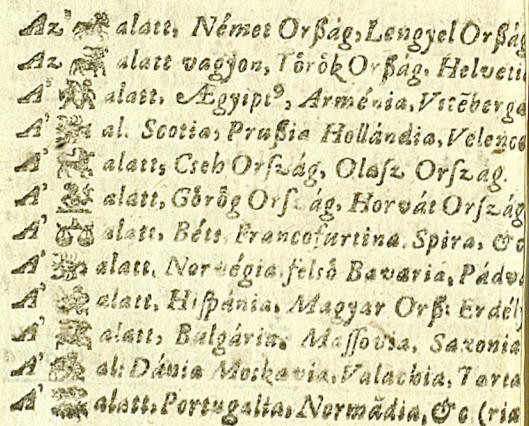 Az ♈ alatt, Német Orßág, Lengyel Orßág
Az ♉ alatt vagyon, Tőrők Orßág, Helveti
A' ♊ alatt, Ægyipt⁹, Arménia, Vitēberga
A' ♋ al. Scotia, Prußia Hollándia, Velence
A' ♌ alatt, Cseh Orſzág, Olaſz Orſzag.
A' ♍ alatt, Gőrőg Orſzág, Horvát Orſzág
A' ♎ alatt, Béts, Francofurtina, Spira, &c
A' ♏ alatt, Norvégia felső Bavaria, Pádva
A' ♐ alatt, Hiſpánia, Magyar Orß: Erdély
A' ♑ alatt, Bulgária, Maſſovia, Saxonia
A' ♒ al: Dánia Moskavia, Valachia, Tarta
A' ♓ alatt, Portugalia, Normādia, &c (ria